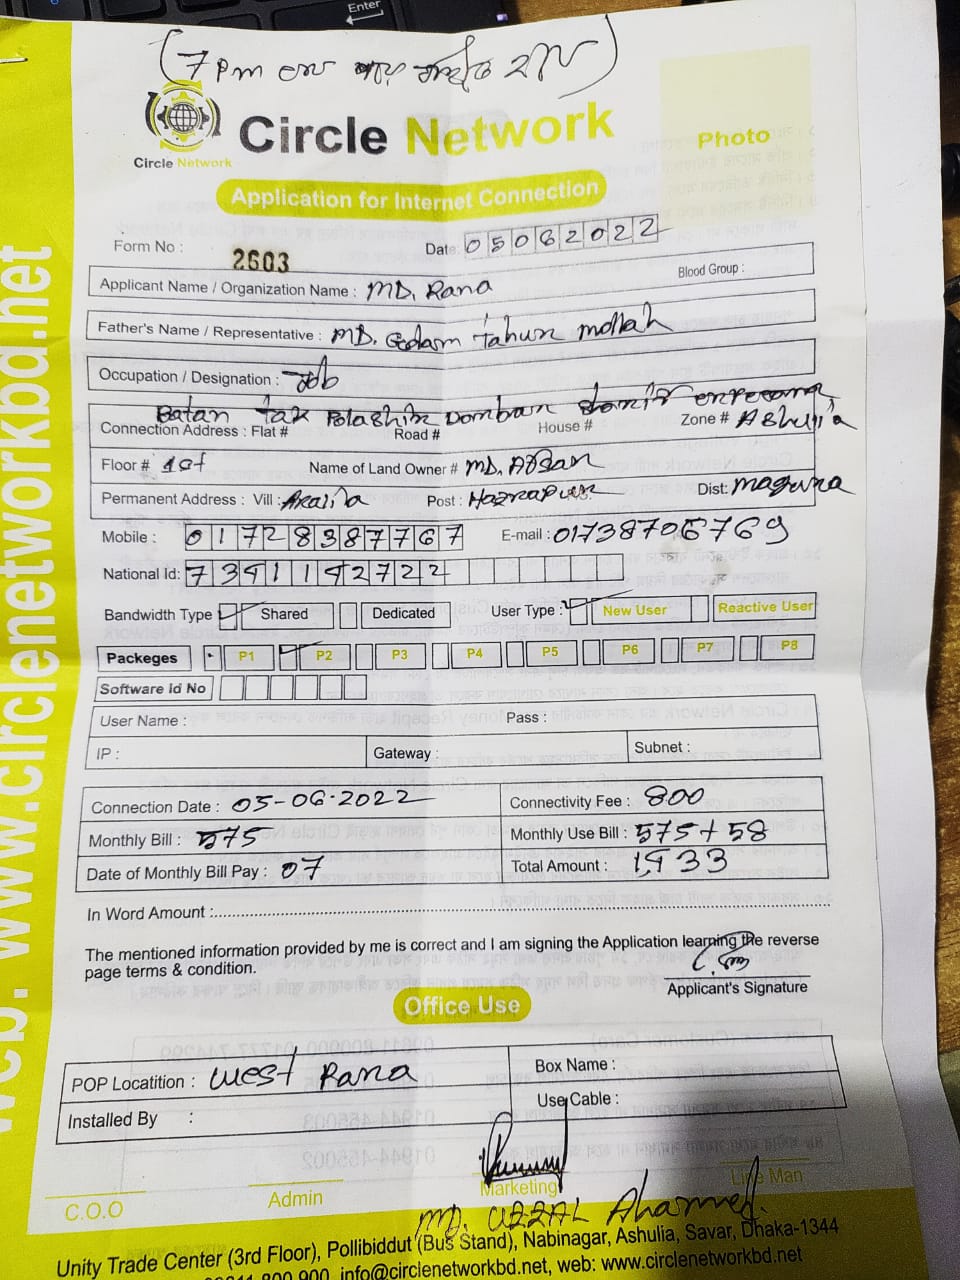 Enter
(7 Pm
Circle Network
Circle Network
Photo
Application for Internet Connection
Form No : 2603
Date: 05062022
Applicant Name / Organization Name : MD. Rana
Blood Group :
Father's Name / Representative : MD. Tahur mollah
Occupation / Designation : Job
Batan Tak Polashir
Connection Address : Flat # Road # House # Zone # Ashulia
Floor # 1st Name of Land Owner # MD.
Permanent Address : Vill : Akalia Post : Hazrapur Dist: magura
Mobile : 01728387767 E-mail : 01738706769
National Id: 7391192722
Bandwidth Type Shared Dedicated User Type : New User Reactive User
Packeges P1 P2 P3 P4 P5 P6 P7 P8
Software Id No
User Name : Pass :
IP : Gateway : Subnet :
Connection Date : 05-06-2022 Connectivity Fee : 800
Monthly Bill : 575 Monthly Use Bill : 575 + 58
Date of Monthly Bill Pay : 07 Total Amount : 1,933
In Word Amount :
The mentioned information provided by me is correct and I am signing the Application learning the reverse
page terms & condition.
Applicant's Signature
Office Use
POP Locatition : West Rana Box Name :
Installed By : Use Cable :
C.O.O Admin Marketing Line Man
MD. UZZAL Ahamed
Unity Trade Center (3rd Floor), Pollibiddut (Bus Stand), Nabinagar, Ashulia, Savar, Dhaka-1344
800 900, info@circlenetworkbd.net, web: www.circlenetworkbd.net
web: www.circlenetworkbd.net